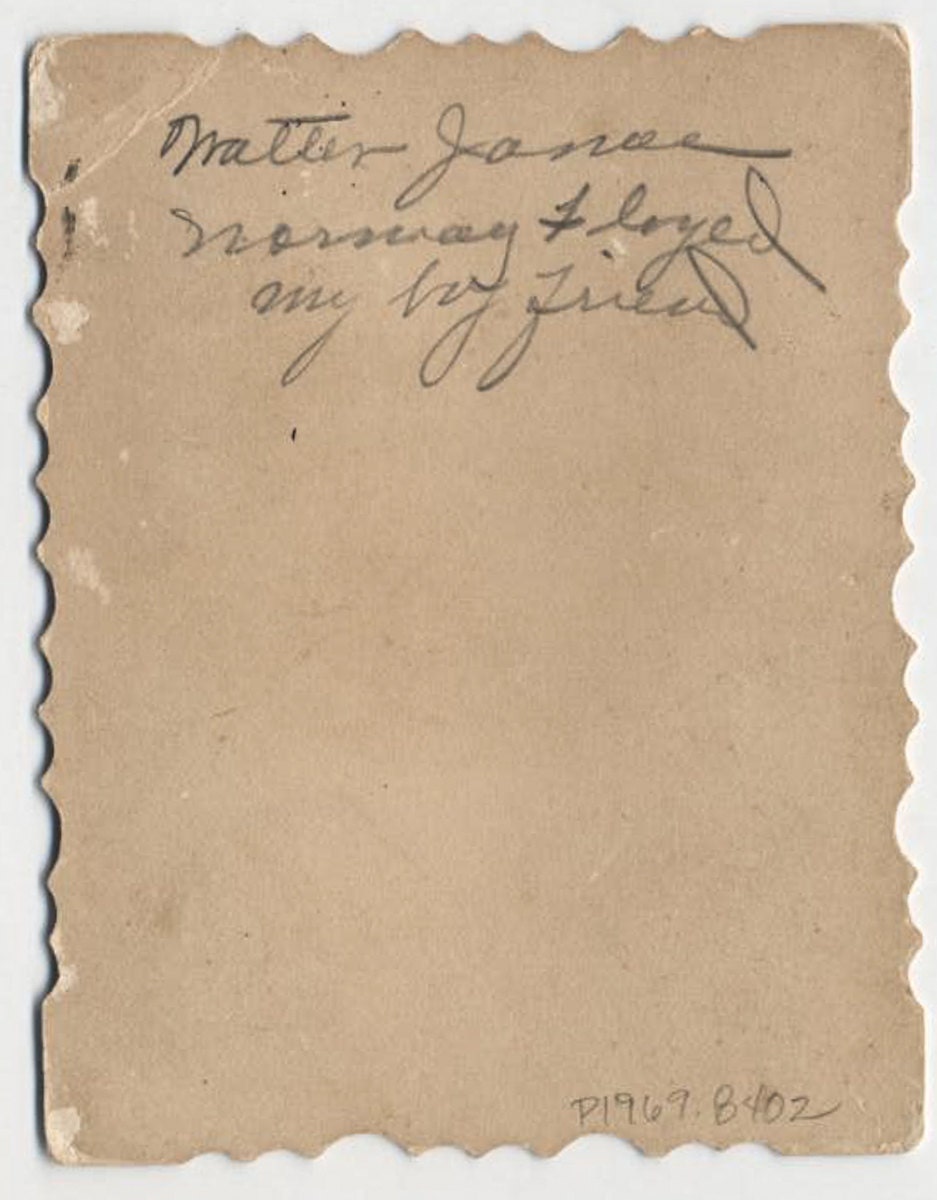 Walter
Norway Floyed
my boy friend
P1969.8402